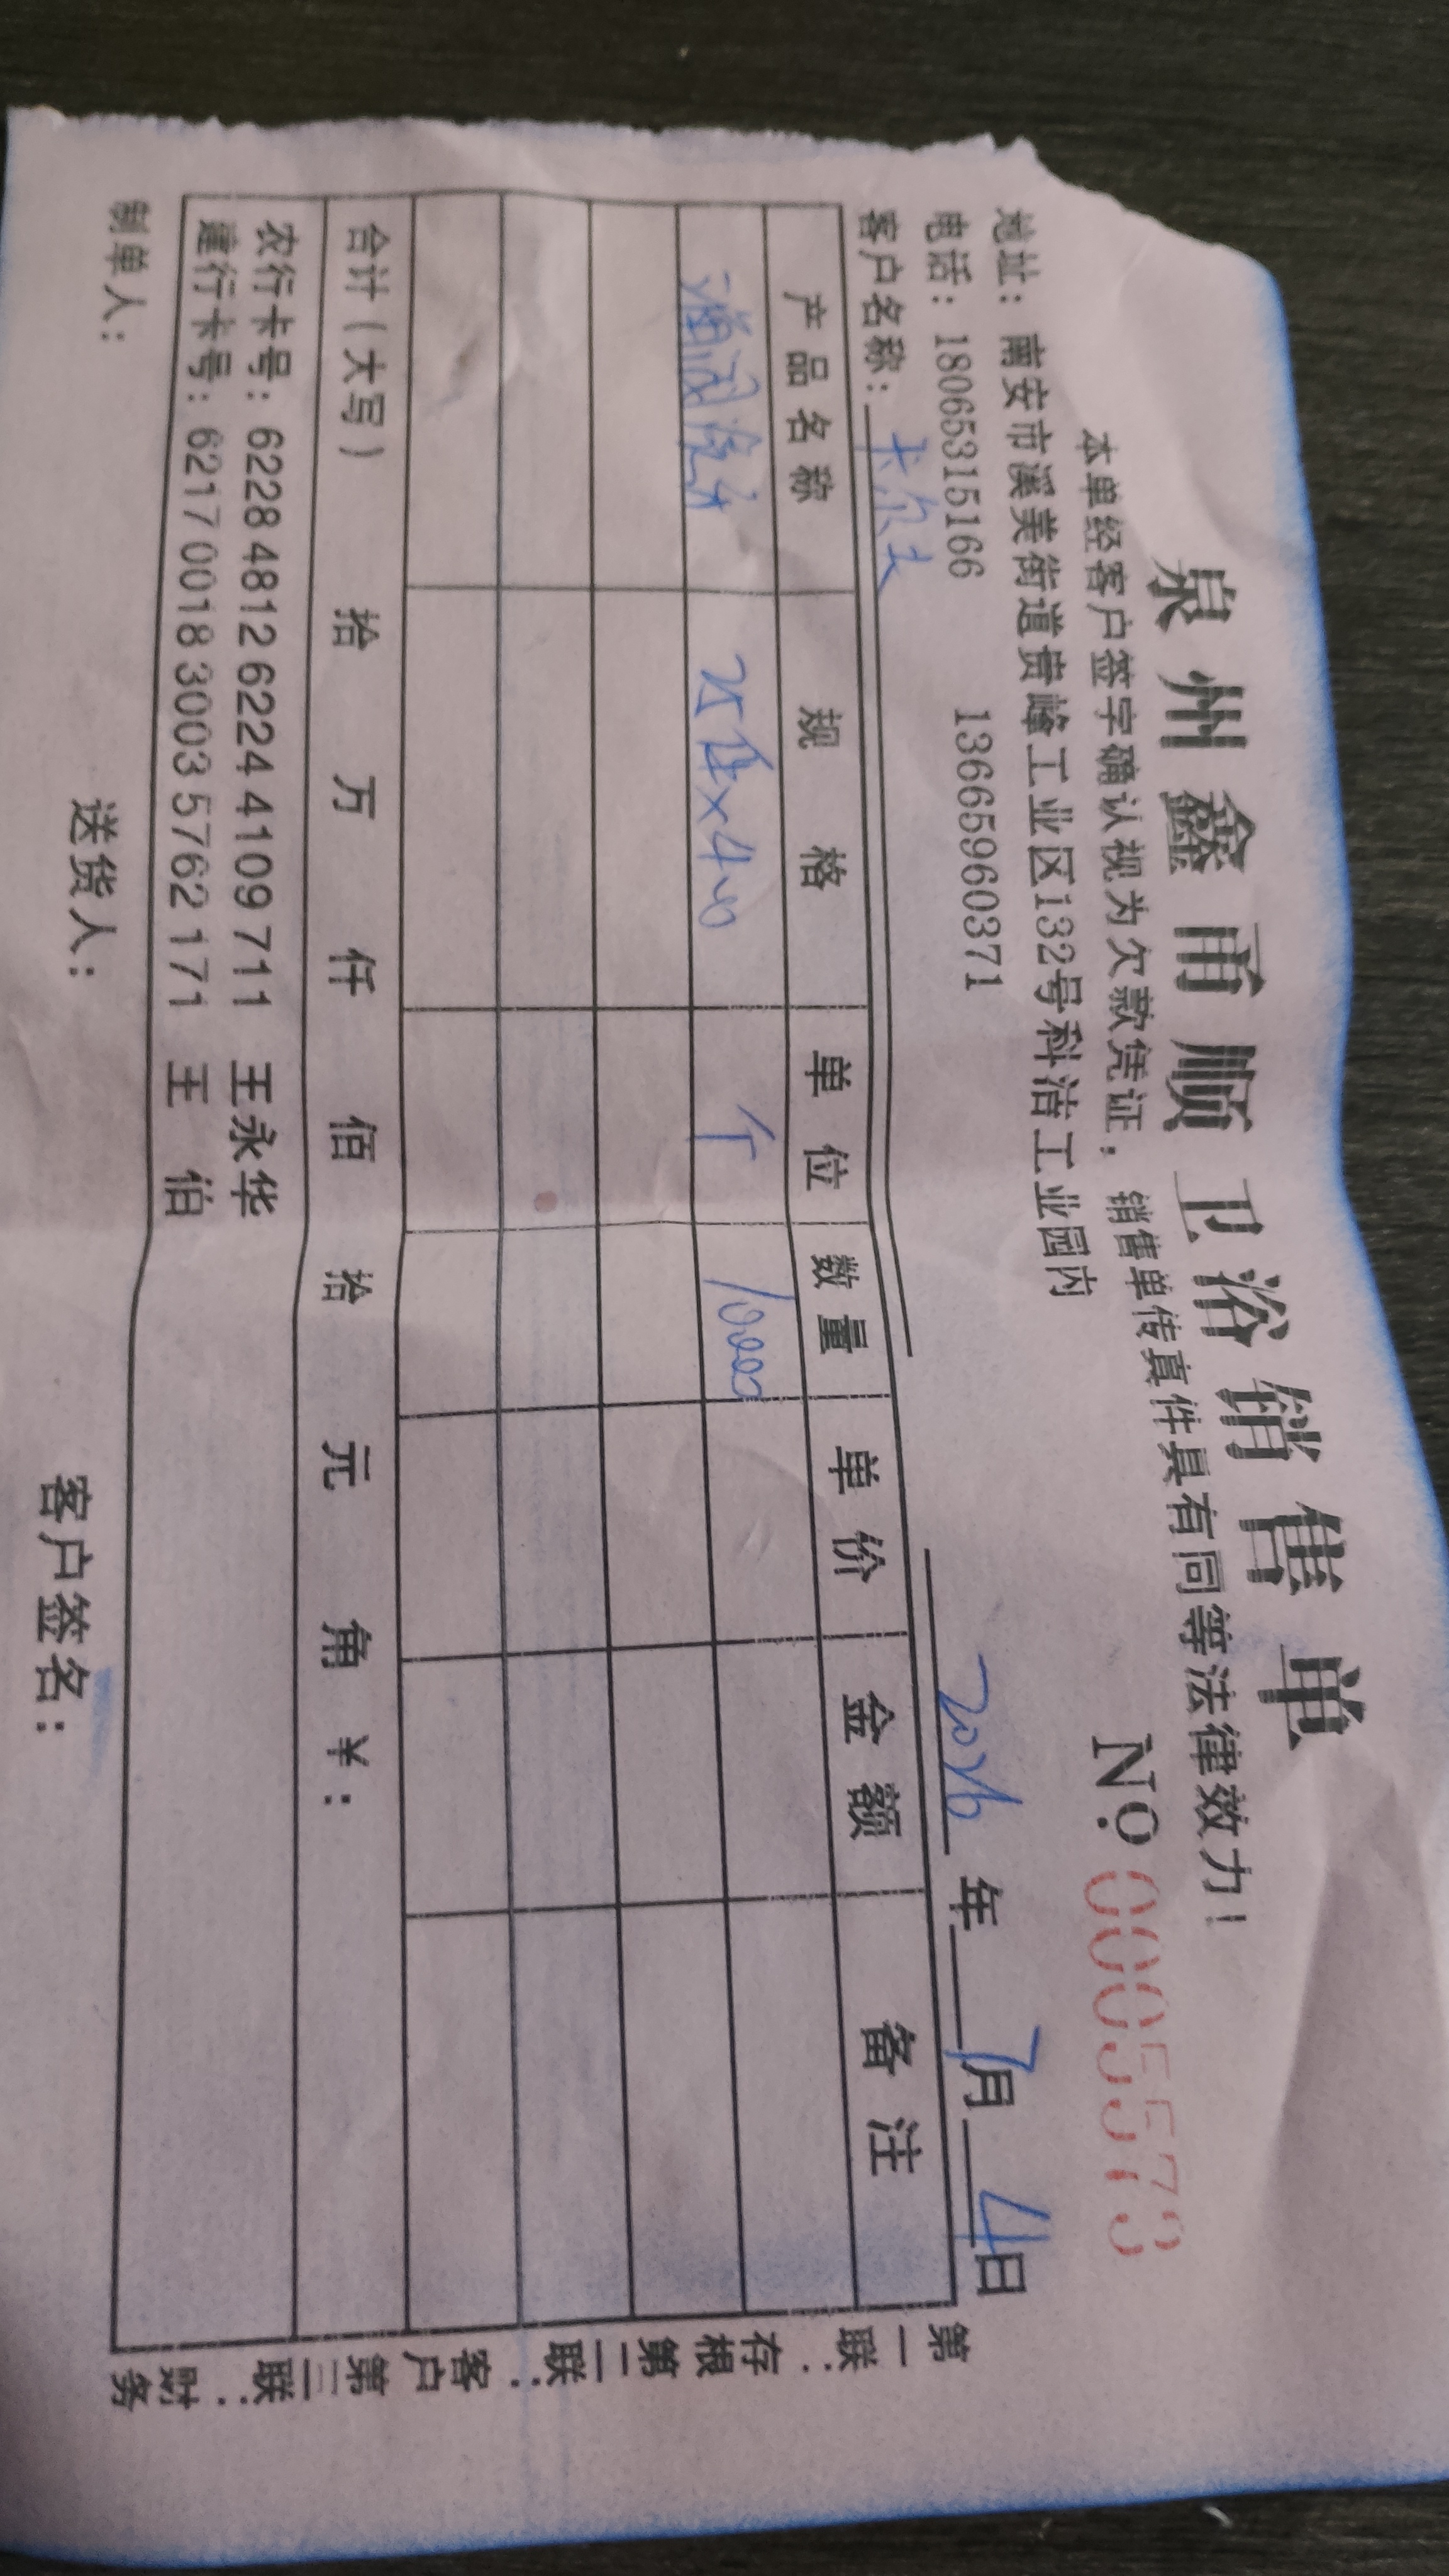 泉州鑫甬顺卫浴销售单
本单经客户签字确认视为欠款凭证，销售单传真件具有同等法律效力！
地址：南安市溪美街道贵峰工业区132号科洁工业园内
№ 0005573
电话：18065315166 13665960371
客户名称： 2026年7月4日
产品名称 规格 单位 数量 单价 金额 备注
25 ×400 个 10000
合计(大写) 拾 万 仟 佰 拾 元 角 ￥：
农行卡号：6228 4812 6224 4109 711 王永华
建行卡号：6217 0018 3003 5762 171 王伯
制单人： 送货人： 客户签名：
第一联：存根 第二联：客户 第三联：财务